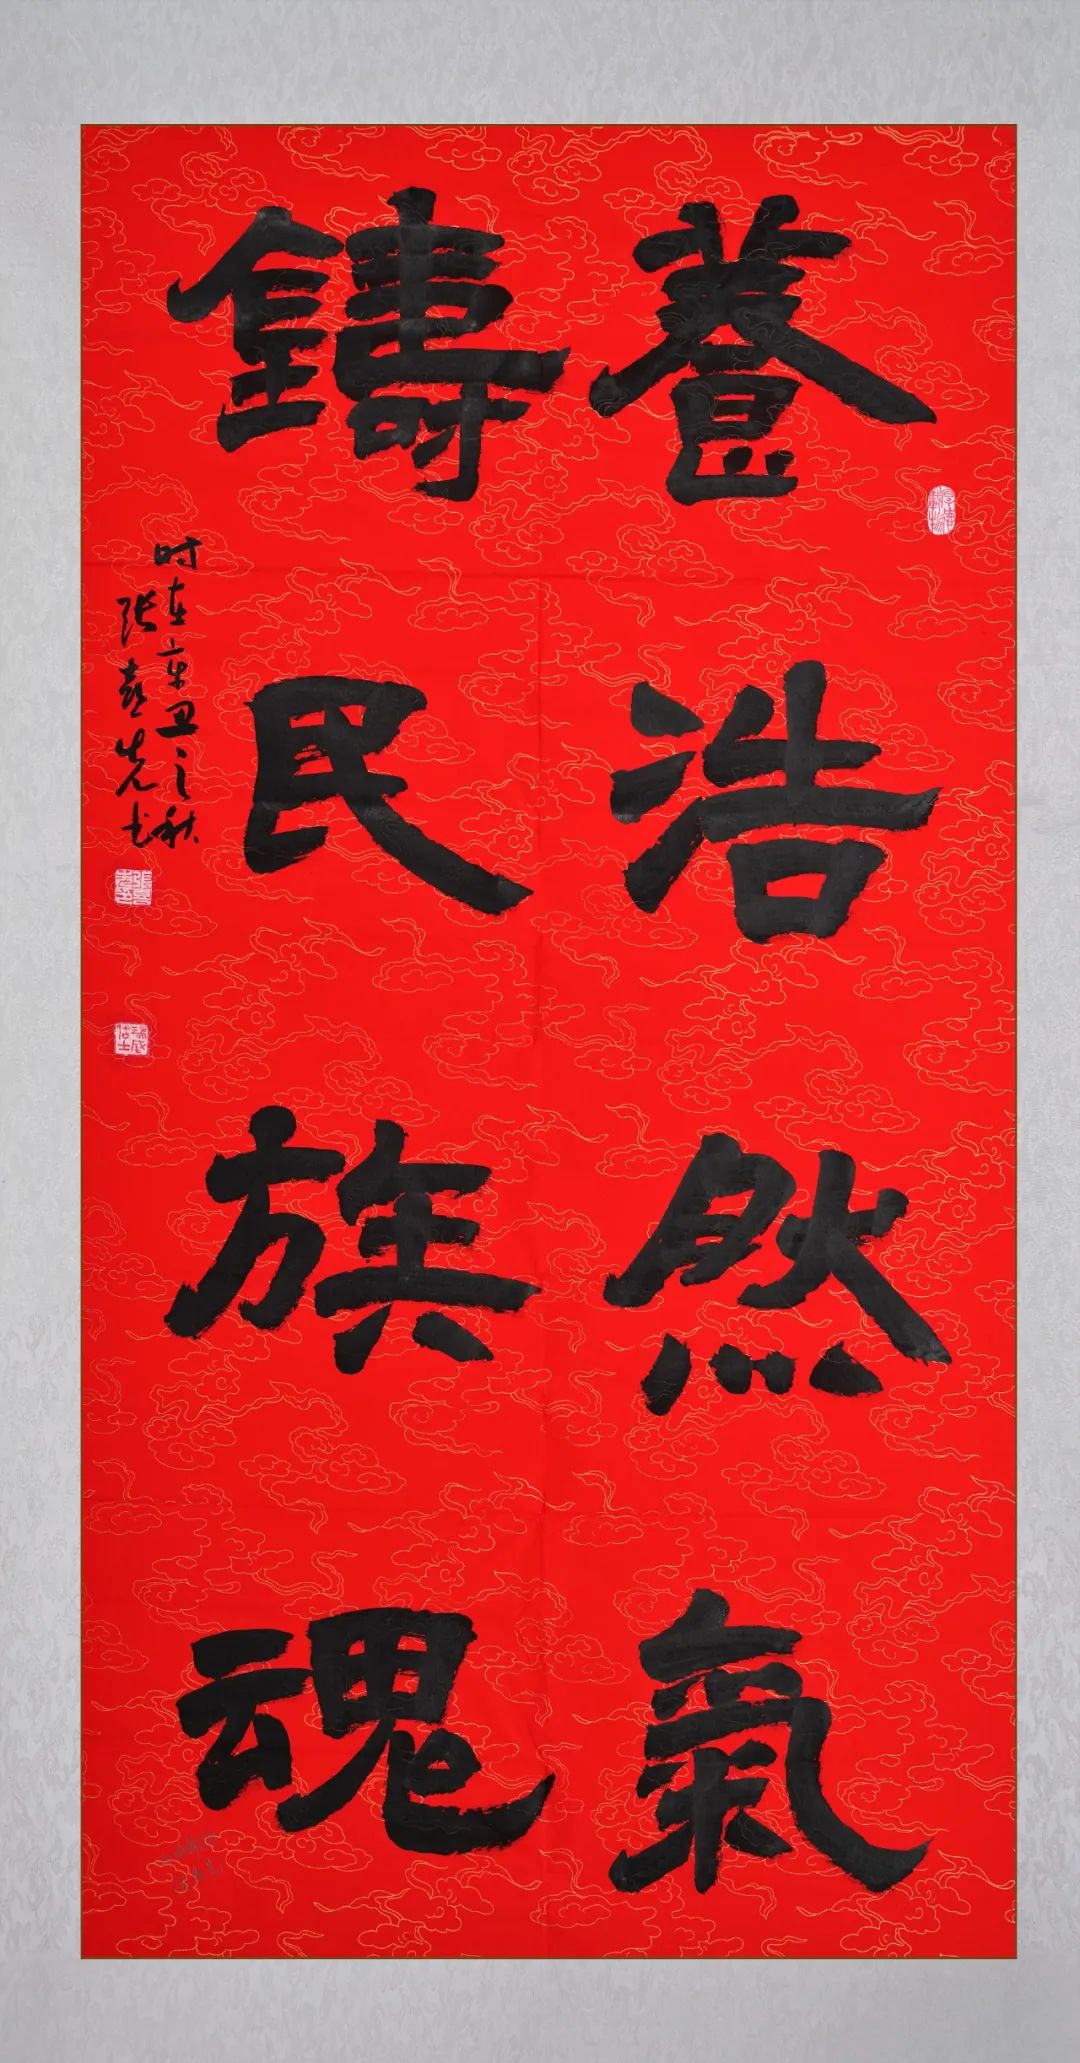 養浩然氣
鑄民族魂
时在辛丑之秋
张喜先书